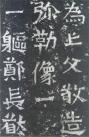 為亡父敬造
弥勒像一
一軀鄭長猷